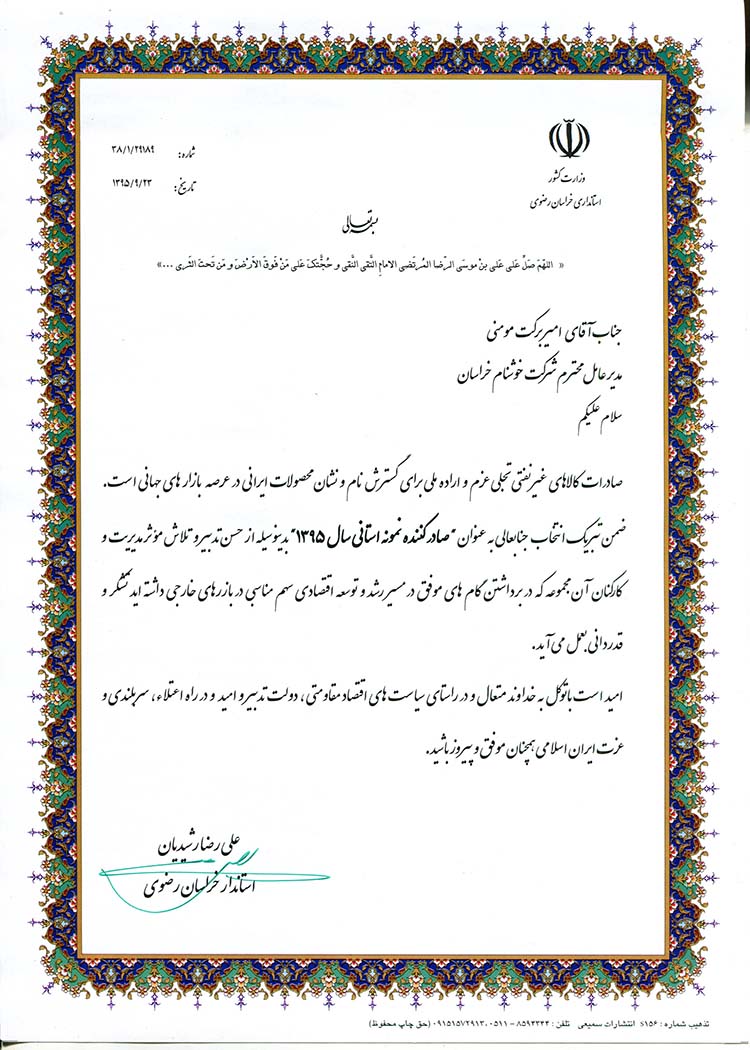 وزارت کشور
استانداری خراسان رضوی
شماره: ۳۸/۱/۲۹۱۸۹
تاریخ: ۱۳۹۵/۹/۲۳
بسمه تعالی
« اللهُمَ صَلِّ عَلی عَلی بنْ موسَی الرِّضا المُرتَضی الامامِ التَّقی النَّقی و حُجَّتِکَ عَلی مَنْ فَوقَ الاَرْضَ و مَن تَحتَ الثَری ...»
جناب آقای امیر برکت مومنی
مدیر عامل محترم شرکت خوشنام خراسان
سلام علیکم
صادرات کالاهای غیر نفتی تجلی عزم و اراده ملی برای گسترش نام و نشان محصولات ایرانی در عرصه بازار های جهانی است.
ضمن تبریک انتخاب جنابعالی به عنوان "صادر کننده نمونه استانی سال ۱۳۹۵" بدینوسیله از حسن تدبیر و تلاش مؤثر مدیریت و
کارکنان آن مجموعه که در برداشتن گام های موفق در مسیر رشد و توسعه اقتصادی سهم مناسبی در بازرهای خارجی داشته اید تشکر و
قدردانی بعمل می آید.
امید است با توکل به خداوند متعال و در راستای سیاست های اقتصاد مقاومتی، دولت تدبیر و امید و در راه اعتلاء، سربلندی و
عزت ایران اسلامی همچنان موفق و پیروز باشید.
علی رضا رشیدیان
استاندار خراسان رضوی
تذهیب شماره : S۱۵۶ انتشارات سمیعی تلفن : ۸۵۹۴۳۳۴ - ۰۵۱۱-۰۹۱۵۱۵۷۲۹۱۳ (حق چاپ محفوظ)